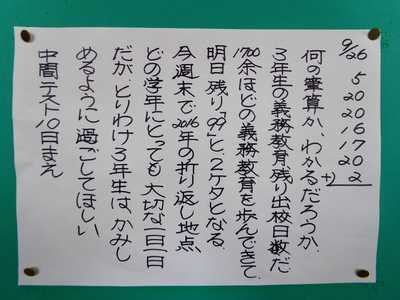 9/26
5
20
20
16
17
20
+) 2
何の筆算か、わかるだろうか。
3年生の義務教育残り出校日数だ。
1700余ほどの義務教育を歩んできて、
明日、残り「99」と、2ケタとなる。
今週末で2016年の折り返し地点、
どの学年にとっても大切な一日一日
だが、とりわけ3年生は、かみし
めるように過ごしてほしい。
中間テスト10日まえ